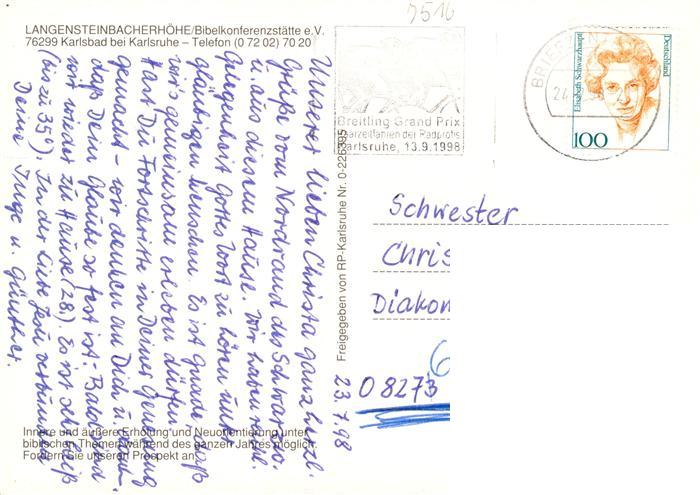 LANGENSTEINBACHERHÖHE/Bibelkonferenzstätte e.V.
76299 Karlsbad bei Karlsruhe – Telefon (0 72 02) 70 20
Unserer lieben Christa ganz herzl.
Grüße vom Nordrand des Schwarzw.
u. aus diesem Hause. Wir haben viel
Gelegenheit Gottes Wort zu hören und
gläubigen Menschen. Es ist gut, daß
wir's gemeinsam erleben dürfen.
Hast Du Fortschritte in Deiner Genesung
gemacht – wir denken an Dich u.
daß Dein Glaube so fest ist. Bald sind
wir wieder zu Hause (28.). Es ist sehr heiß
(bis zu 35°). In der Liebe Jesu verbunden
Deine Inge u. Günther.
23.7.98
Innere und äußere Erholung und Neuorientierung unter
biblischen Themen während des ganzen Jahres möglich.
Fordern Sie unseren Prospekt an.
Freigegeben von RP-Karlsruhe Nr. 0-226395
7516
Breitling Grand Prix
Paarzeitfahren der Radprofis
Karlsruhe, 13.9.1998
BRIEF
24
Elisabeth Schwarzhaupt
Deutschland
100
Schwester
Chris
Diakon
6
08273